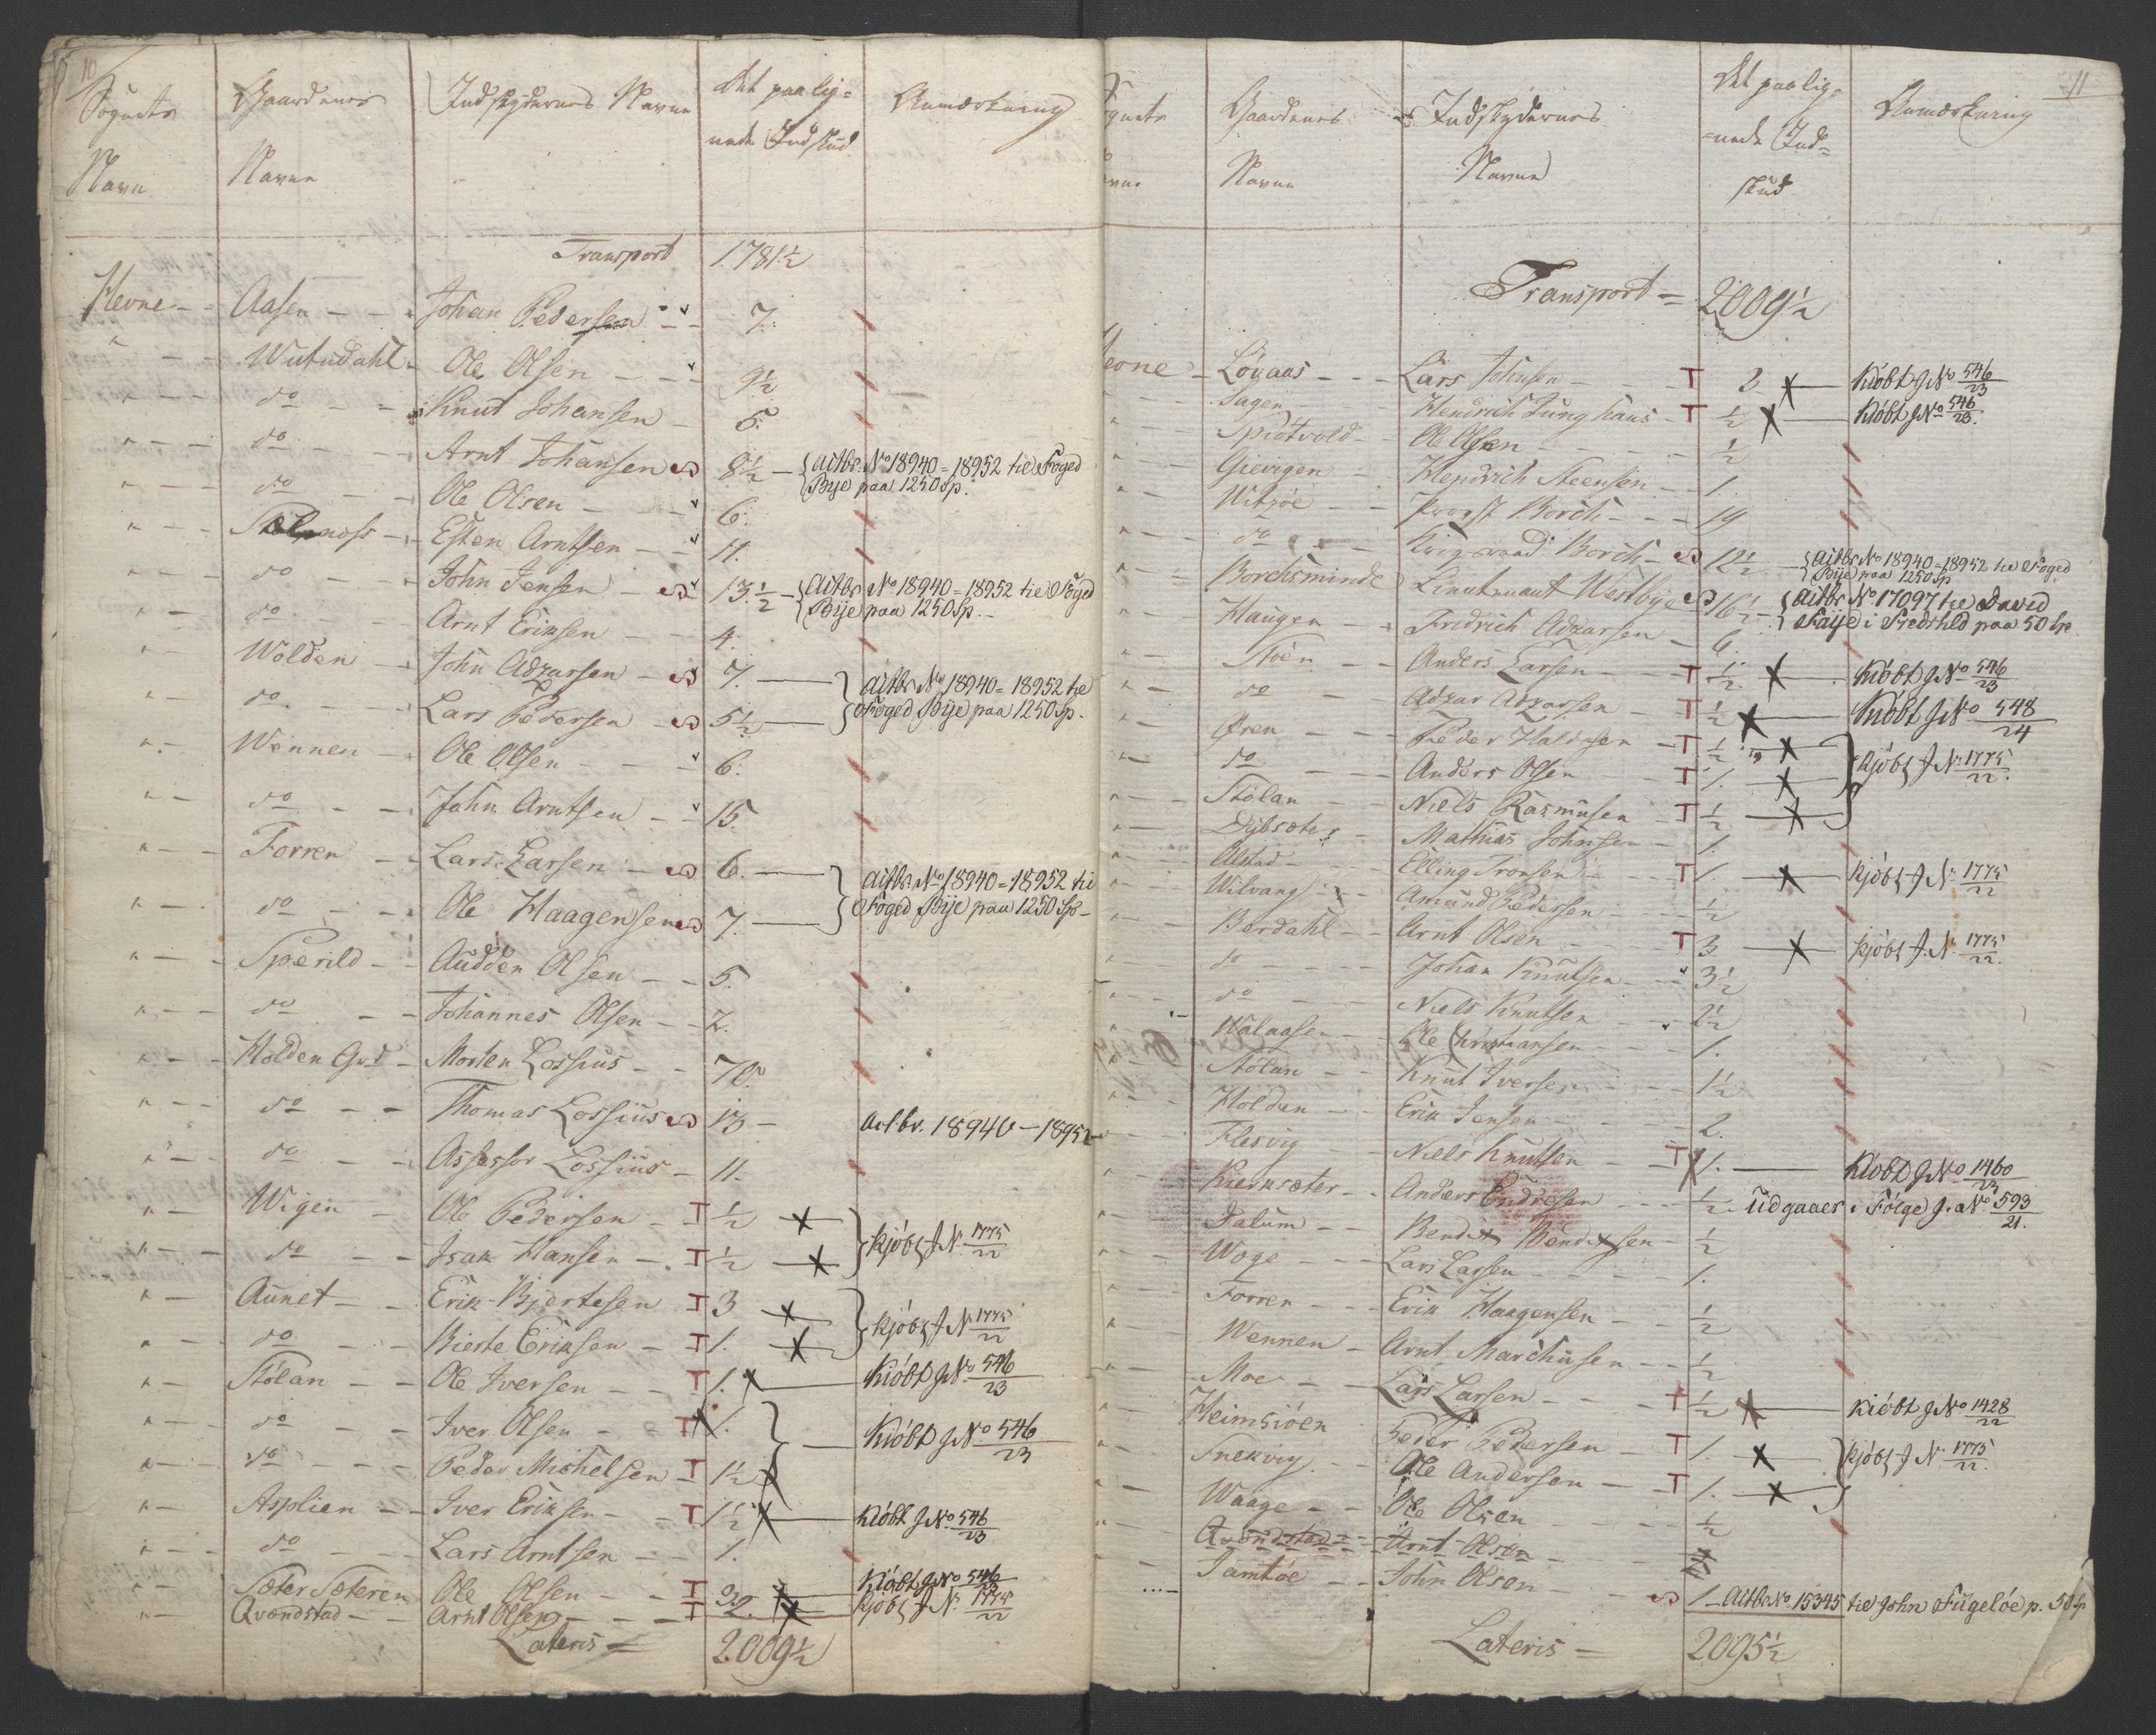 10
Sognets Navn | Gaardenes Navn | Indskydernes Navne | Det paalignede Indskud | Anmærkning
Transport 1781½
Hevne Aasen Johan Pedersen 7.
" Wutudahl Ole Olsen 9½
" do Knut Johansen 5.
" do Arnt Johansen 8½ Actbr. No 18940=18952 til Foged Bije paa 1250 Sp.
" do Ole Olsen 6.
" Stølsnoss Esten Arntsen 11.
" do John Jensen 13½ Actbr No 18940=18952 til Foged Bije paa 1250 Sp.
" do Arnt Eriksen 4.
" Wolden John Adzarsen 7.
" do Lars Pedersen 5½ Actbr No 18940=18952 til Foged Bije paa 1250 Sp.
" Wennen Ole Olsen 6.
" do John Arntsen 15.
" Forren Lars Larsen 6.
" do Ole Haagensen 7. Actbr No 18940=18952 til Foged Bije paa 1250 Sp
" Sperild Audden Olsen 5.
" do Johannes Olsen 2.
" Holden Grd Morten Lossius 70.
" do Thomas Lossius 13 Act.br. 18940-18952
" do Assessor Lossius 11.
" Wigen Ole Pedersen T ½
" do Isak Hansen T ½ kjøbt J N. 1775/22
" Aunet Erik Bjertesen T 3
" do Bierte Eriksen T 1. kjøbt J N. 1775/22
" Stølan Ole Iversen T 1. Kiøbt J No 546/23
" do Iver Olsen T 1.
" do Peder Michelsen T 1½ Kiøbt J No 546/23
" Asplien Iver Eriksen T 1½ Kiøbt J No 546/23
" do Lars Arntsen 1.
" Sæter Sæteren Ole Olsen T Kiøbt J No 546/23
" Qvendstad Arnt Olsen T 2. kjøbt J N. 1775/22
Lateris = 2009½
11
Sognets Navn | Gaardenes Navn | Indskydernes Navne | Det paalignede Indskud | Anmærkning
Transport = 2009½
Hevne Løvaas Lars Johnsen T 2 Kiøbt J No 546/23
" Sagen Hendrich Junghans T ½ Kiøbt J No 546/23.
" Spiøtvold Ole Olsen ½
" Gievigen Hendrich Steensen 1.
" Witzøe Provst Borch 19
" do Krigsraad Borch 12½ Actbr No 18940=18952 til Foged Bije paa 1250 Sp
" Borchsminde Lieutenant Westbye 16½ Actbr No 17097 til David Faije i Fredrhld paa 50 Sp.
" Haugen Fridrich Adzarsen 6.
" Stoen Anders Larsen T ½ Kiøbt J No 546/23
" do Adzar Adzarsen T ½ Kiøbt J No 548/24
" Øren Peder Haldsen T ½
" do Anders Olsen T 1. kjøbt J N. 1775/22.
" Stølan Niels Rasmusen T ½
" Dybsæter Mathias Johnsen 1.
" Alstad Elling Tronsen T 1. kjøbt J N. 1775/22
" Wilvang Amund Pedersen ½
" Berdahl Arnt Olsen T 3. kjøbt J. N. 1775/22.
" do Johan Knutsen 3½
" do Niels Knutsen 2½
" Walaasen Ole Christiansen 1.
" Stølan Knut Iversen 1½
" Holden Erik Jensen 2.
" Flesvig Niels Knutsen T 1. Kiøbt J No 1460/23
" Kiernsæter Anders Endresen ½ Udgaaer i Følge J. No 593/21.
" Dalum Bendix Bendixsen ½
" Woge Lars Larsen 1.
" Forren Erik Haagensen ½
" Wennen Arnt Marchusen ½
" Moe Lars Larsen T ½ Kiøbt J No 1428/22
" Heimsiøen Peder Pedersen T 1.
" Snekvig Ole Andersen T 1. kjøbt J N. 1775/22.
" Waage Ole Olsen ½
" Qvendstad Arnt Olsen
" Jamtøe John Olsen 1 Actbr No 15345 til John Fugeløe p. 50 Sp
Lateris = 2095½